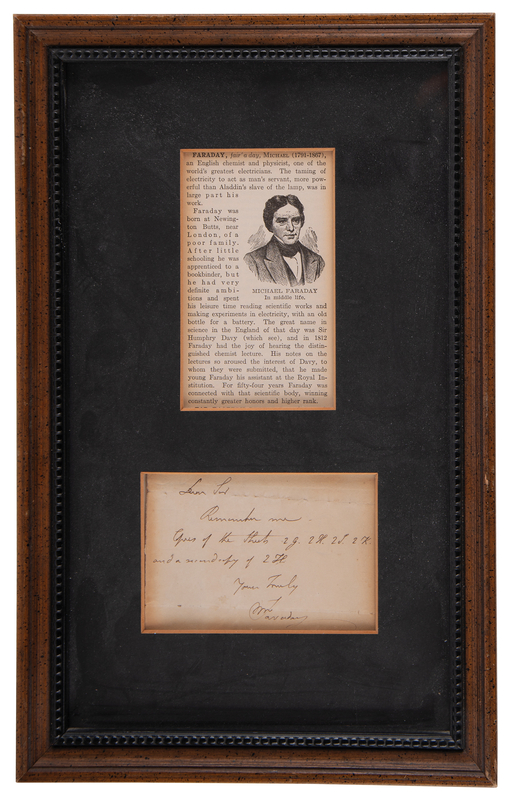 FARADAY, far'a day, MICHAEL (1791-1867),
an English chemist and physicist, one of the
world's greatest electricians. The taming of
electricity to act as man's servant, more pow-
erful than Aladdin's slave of the lamp, was in
large part his
work.
Faraday was
born at Newing-
ton Butts, near
London, of a
poor family.
After little
schooling he was
apprenticed to a
bookbinder, but
he had very
definite ambi-
tions and spent
MICHAEL FARADAY
In middle life.
his leisure time reading scientific works and
making experiments in electricity, with an old
bottle for a battery. The great name in
science in the England of that day was Sir
Humphry Davy (which see), and in 1812
Faraday had the joy of hearing the distin-
guished chemist lecture. His notes on the
lectures so aroused the interest of Davy, to
whom they were submitted, that he made
young Faraday his assistant at the Royal In-
stitution. For fifty-four years Faraday was
connected with that scientific body, winning
constantly greater honors and higher rank.
Dear Sir
Remember me
Copies of the sheets 2G. 2H. 2I. 2K
and a second copy of 2H
Yours Truly
M Faraday